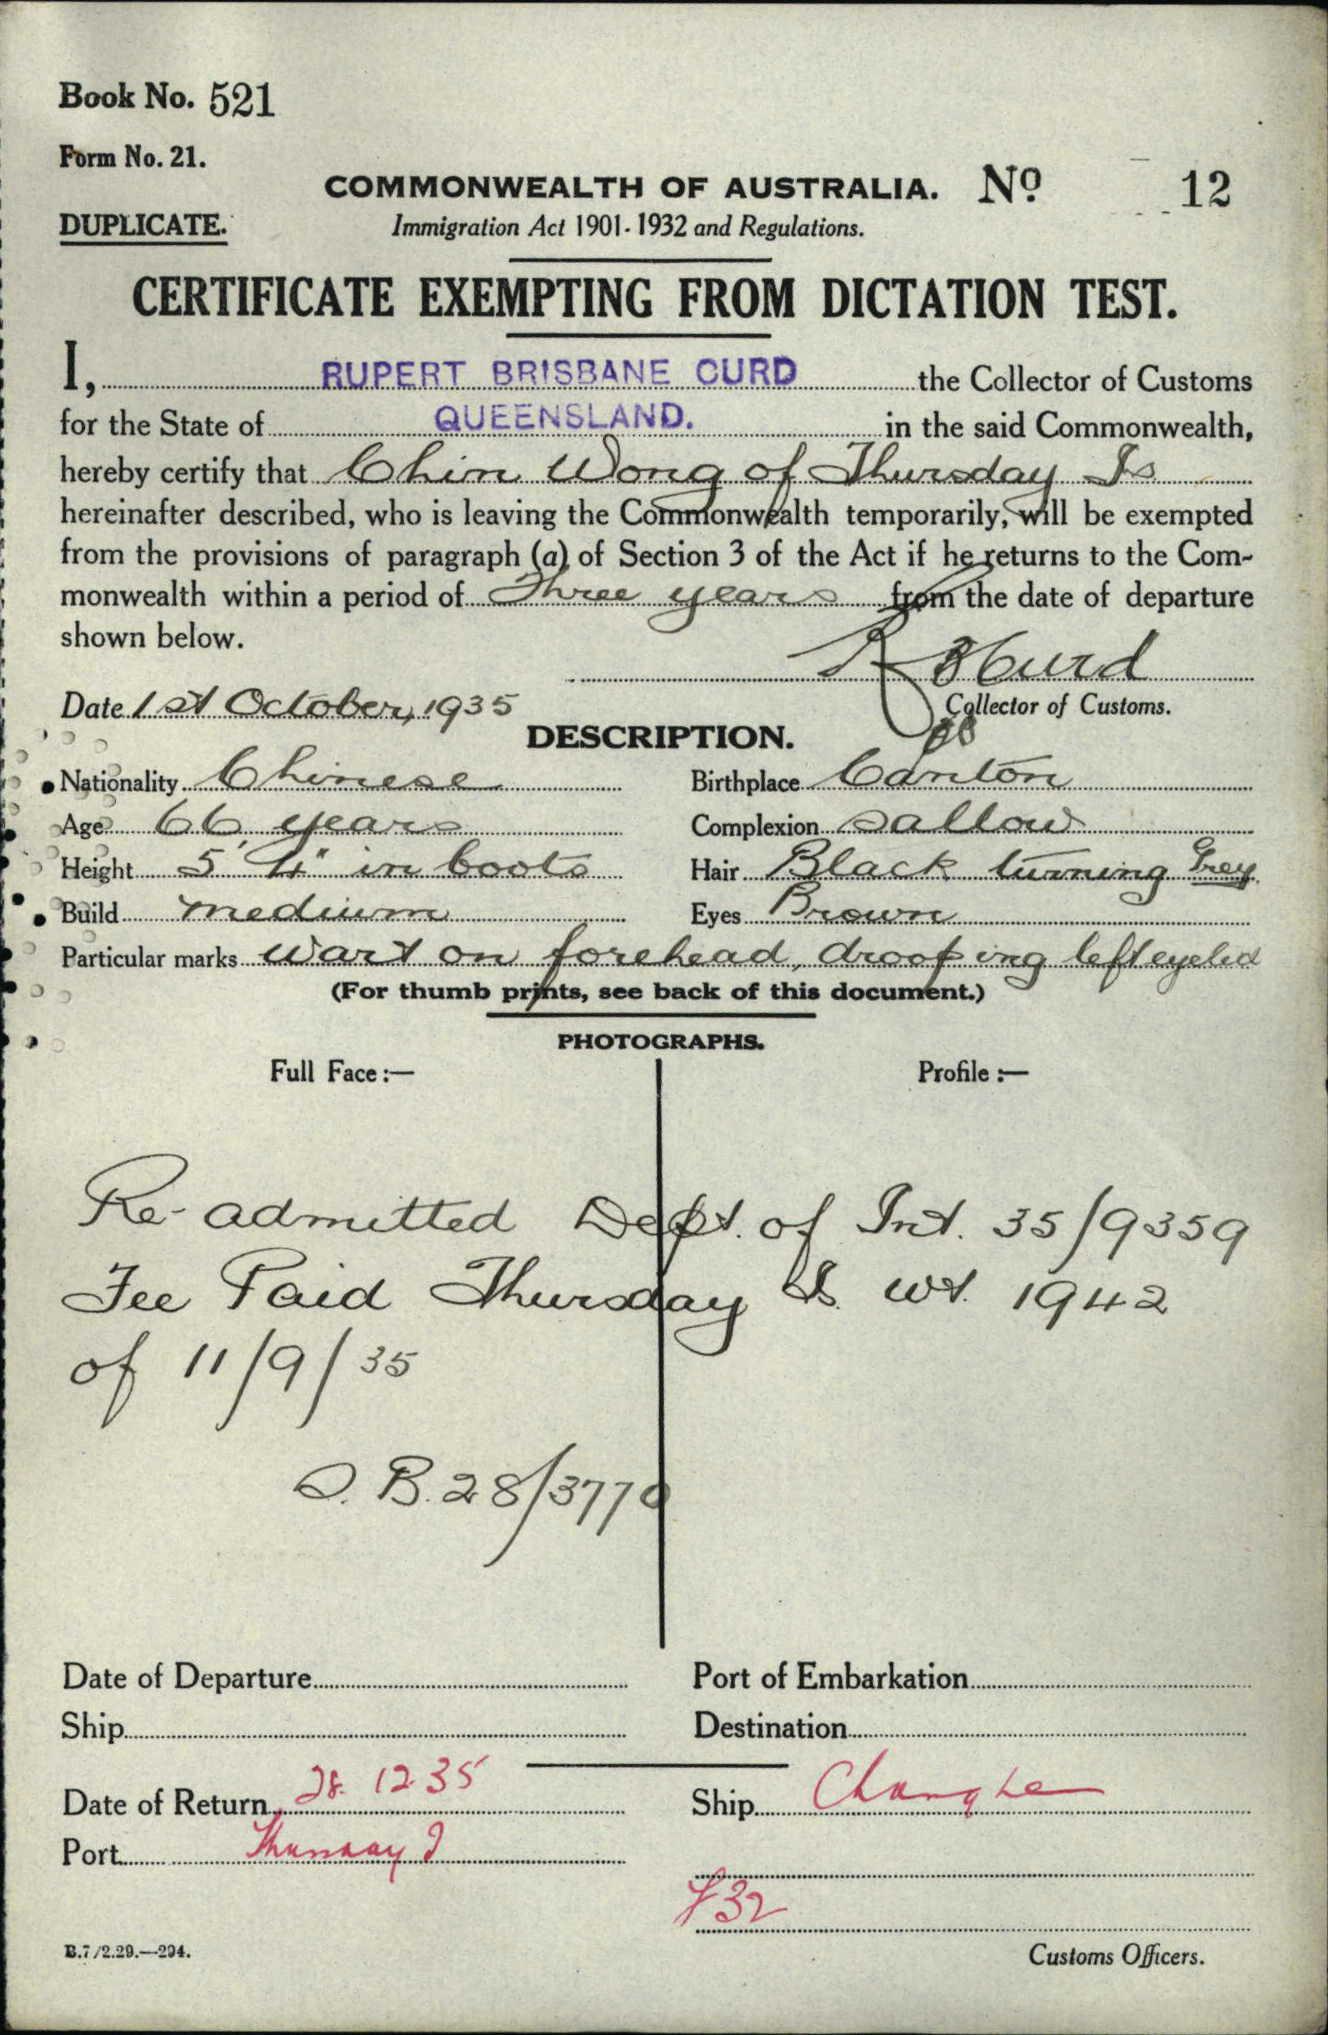 Book No. 521
Form No. 21.
COMMONWEALTH OF AUSTRALIA. No 12
DUPLICATE.
Immigration Act 1901-1932 and Regulations.
CERTIFICATE EXEMPTING FROM DICTATION TEST.
I, RUPERT BRISBANE CURD the Collector of Customs
for the State of QUEENSLAND. in the said Commonwealth,
hereby certify that Chin Wong of Thursday Is
hereinafter described, who is leaving the Commonwealth temporarily, will be exempted
from the provisions of paragraph (a) of Section 3 of the Act if he returns to the Com-
monwealth within a period of Three years from the date of departure
shown below.
R B Curd
Date 1st October, 1935 Collector of Customs.
DESCRIPTION.
Nationality Chinese Birthplace Canton
Age 66 years Complexion Sallow
Height 5' 4" in boots Hair Black turning Grey
Build medium Eyes Brown
Particular marks wart on forehead, drooping left eyelid
(For thumb prints, see back of this document.)
PHOTOGRAPHS.
Full Face :— Profile :—
Re-admitted Dept. of Int. 35/9359
Fee Paid Thursday Is. wt. 1942
of 11/9/35
B. 28/3770
Date of Departure Port of Embarkation
Ship Destination
Date of Return 28. 12 35 Ship Changte
Port Thursday I
F32
B.7/2.29.—294. Customs Officers.